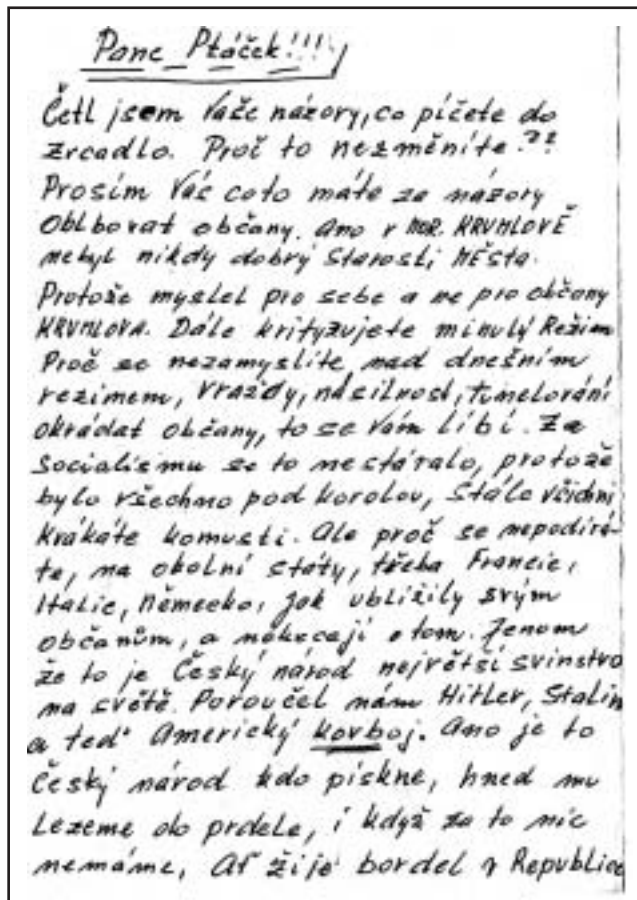 Pane Ptáček!!!
Četl jsem Vaše názory, co píčete do
zrcadlo. Proč to nezměníte??
Prosím Vás coto máte za názory
Oblbovat občany. Ano v MOR. KRUMLOVĚ
nebyl nikdy dobrý Starosti MĚsta.
Protože myslel pro sebe a ne pro občany
KRUMLOVA. Dále krityzujete minulý Režim
Proč se nezamyslíte, nad dnešním
rezimem, Vraždy, násilnost, tunelování
okrádat občany, to se Vám líbí. Za
Socialismu se to nestáralo, protože
bylo všechno pod korolou, Stále všichni
Krákáte komusti. Ale proč se nepodívá-
te, na okolní státy, třeba Francie,
Italie, Německo, jak ublížily svým
občanům, a nekecají o tom. Jenom
že to je Český národ největší svinstvo
na světě. Poroučel nám Hitler, Stalin
a teď Americký kovboj. Ano je to
Český národ kdo pískne, hned mu
Lezeme do prdele, i když za to nic
nemáme, Ať žije bordel v Republice